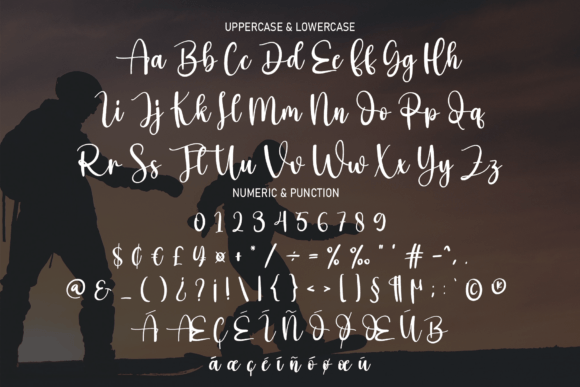 UPPERCASE & LOWERCASE
Aa Bb Cc Dd Ee Ff Gg Hh
Ii Jj Kk Ll Mm Nn Oo Pp Qq
Rr Ss Tt Uu Vv Ww Xx Yy Zz
NUMERIC & PUNCTION
0 1 2 3 4 5 6 7 8 9
$ ¢ € £ ¥ ¤ + " / ÷ = % ‰ " ' # - ^ , .
@ & _ ( ) ¿ ? ¡ ! \ | { } < > [ ] § ¶ µ ; : ` © ®
Á Æ Ç É Í Ñ Ó Ø Œ Ú ß
á æ ç é í ñ ó ø œ ú